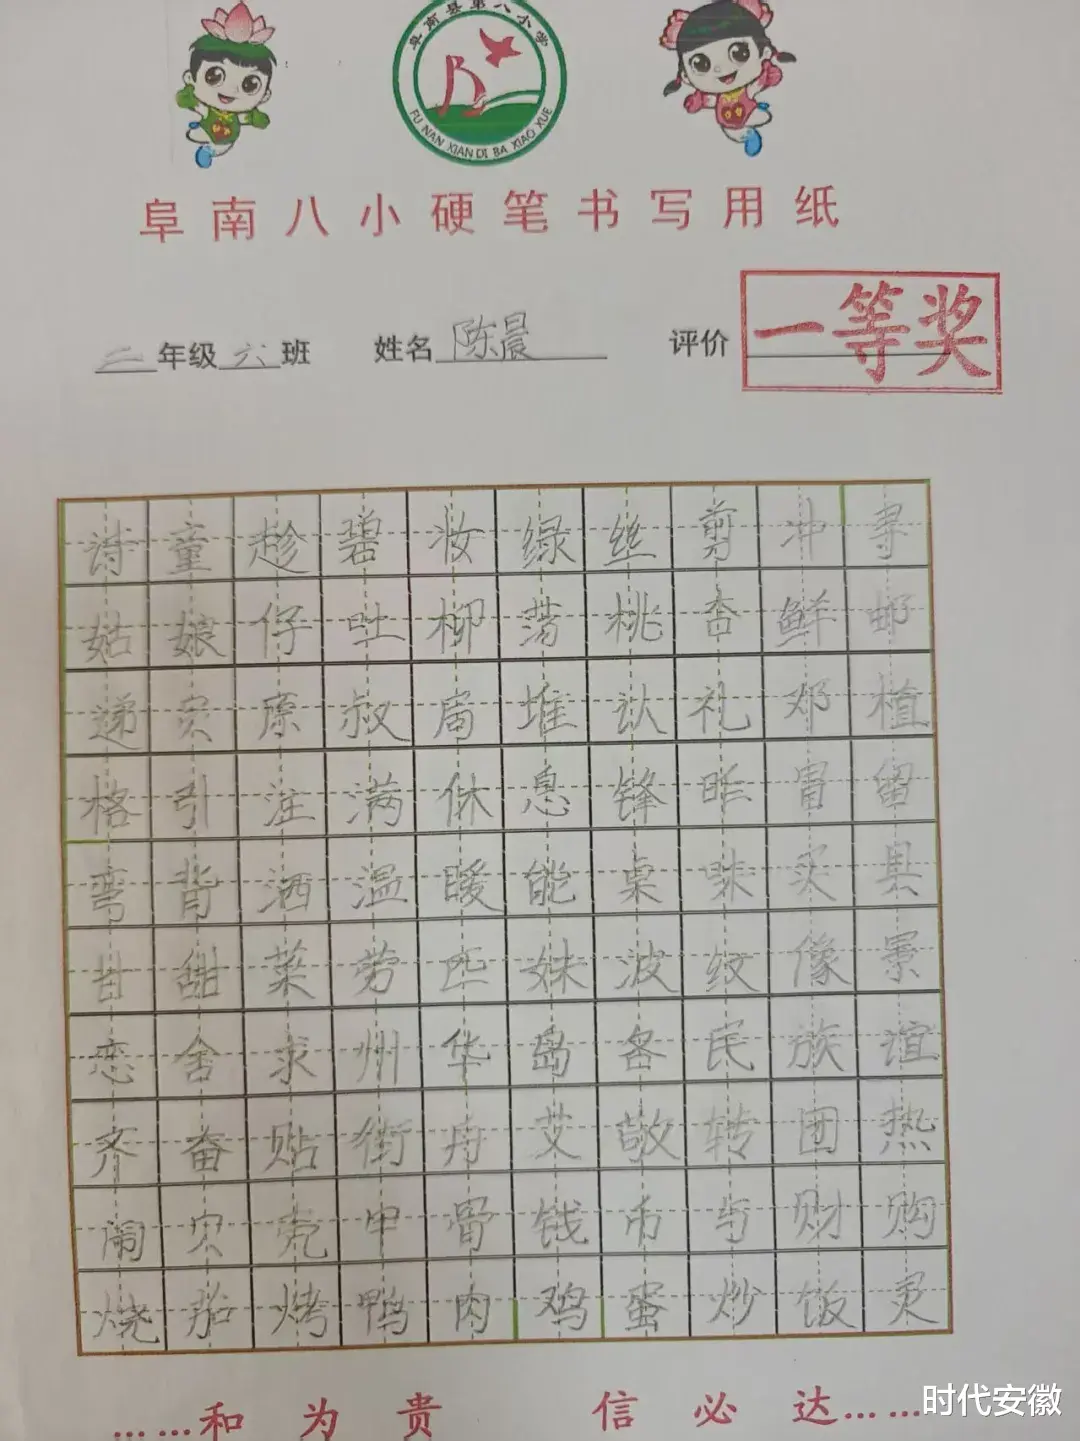 阜南县第八小学
FU NAN XIAN DI BA XIAO XUE
阜南八小硬笔书写用纸
二年级六班 姓名陈晨 评价 一等奖
诗童趁碧妆绿丝剪冲寻
姑娘仔吐柳荡桃杏鲜邮
递员原叔局堆认礼邓植
格引注满休息锋昨冒留
弯背洒温暖能桌味买具
甘甜菜劳匹妹波纹像景
恋舍求州华岛各民族谊
齐奋贴街舟艾敬转团热
闹贝壳甲骨钱币与财购
烧茄烤鸭肉鸡蛋炒饭灵
……和为贵 信必达……
时代安徽